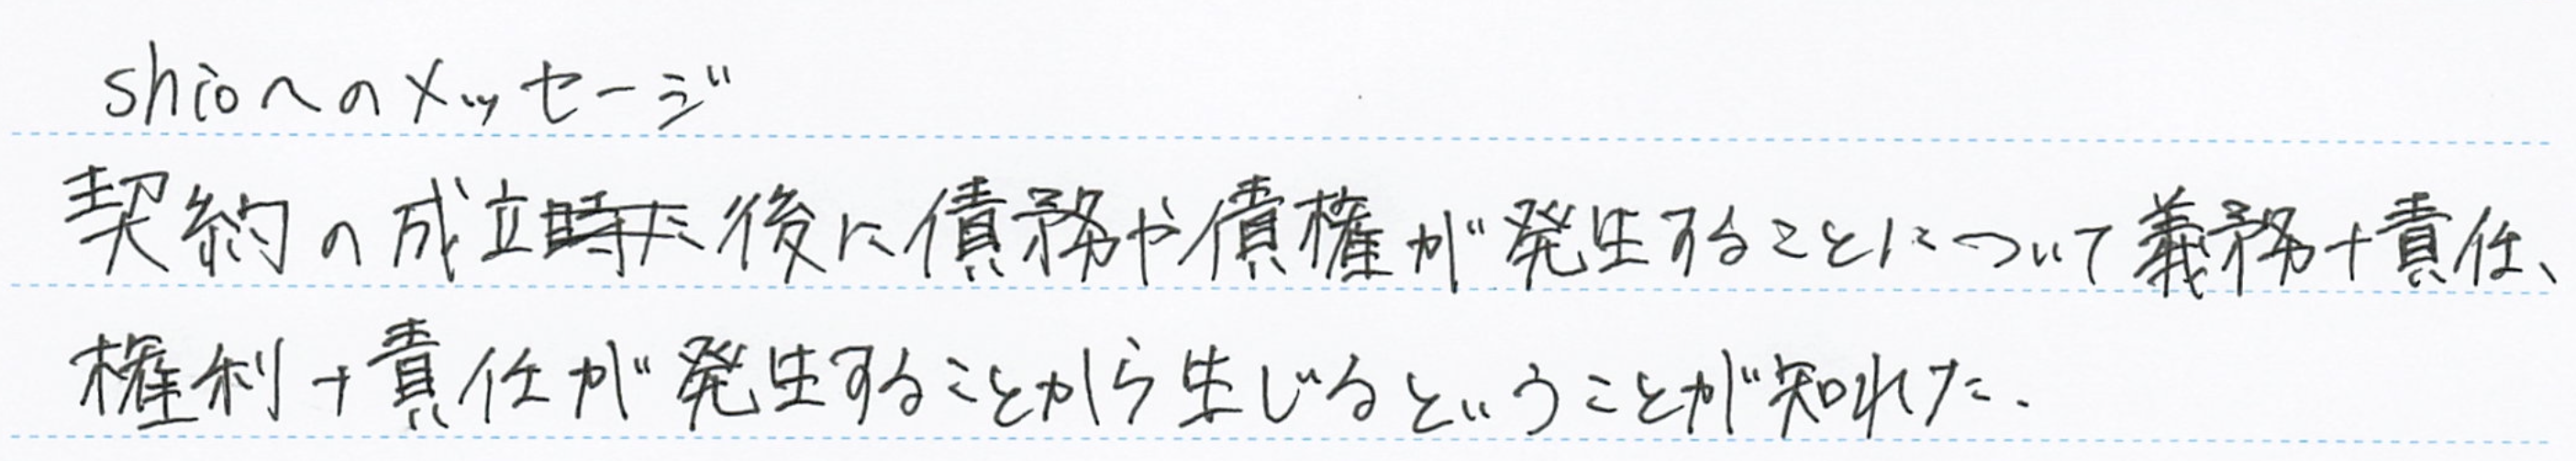 shioへのメッセージ
契約の成立後に債務や債権が発生することについて義務+責任、
権利+責任が発生することから生じるということが知れた.